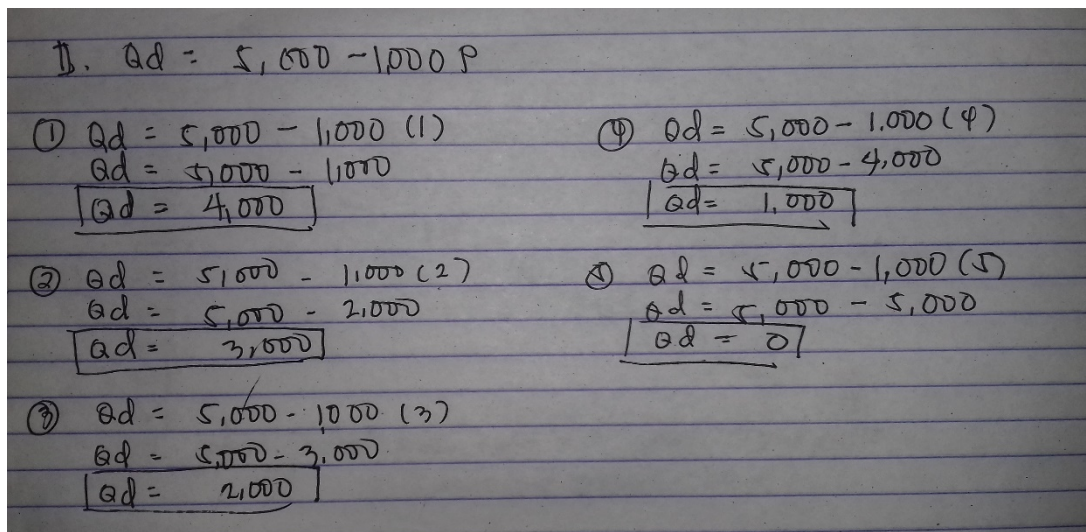 II. Qd = 5,000 - 1,000 P
① Qd = 5,000 - 1,000 (1)
Qd = 5,000 - 1,000
Qd = 4,000
② Qd = 5,000 - 1,000 (2)
Qd = 5,000 - 2,000
Qd = 3,000
③ Qd = 5,000 - 1000 (3)
Qd = 5,000 - 3,000
Qd = 2,000
④ Qd = 5,000 - 1.000 (4)
Qd = 5,000 - 4,000
Qd = 1,000
⑤ Qd = 5,000 - 1,000 (5)
Qd = 5,000 - 5,000
Qd = 0